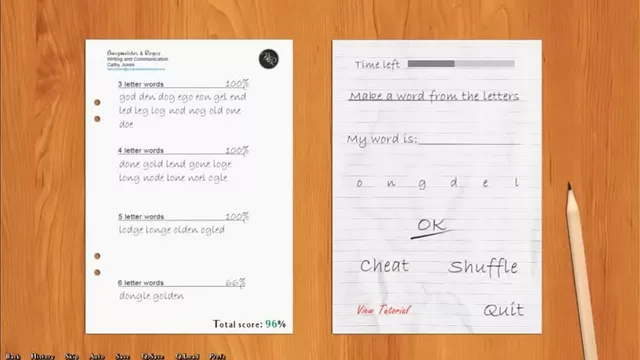 Writing and Communication
Cathy Jones
3 letter words 100%
god den dog ego eon gel end
led leg log nod nog old one
doe
4 letter words 100%
done gold lend gone loge
long node lone noel ogle
5 letter words 100%
lodge longe olden ogled
6 letter words 66%
dongle golden
Total score: 96%
Time left
Make a word from the letters
My word is:
o n g d e l
OK
Cheat Shuffle
View Tutorial Quit
Back History Skip Auto Save Q.Save Q.Load Prefs